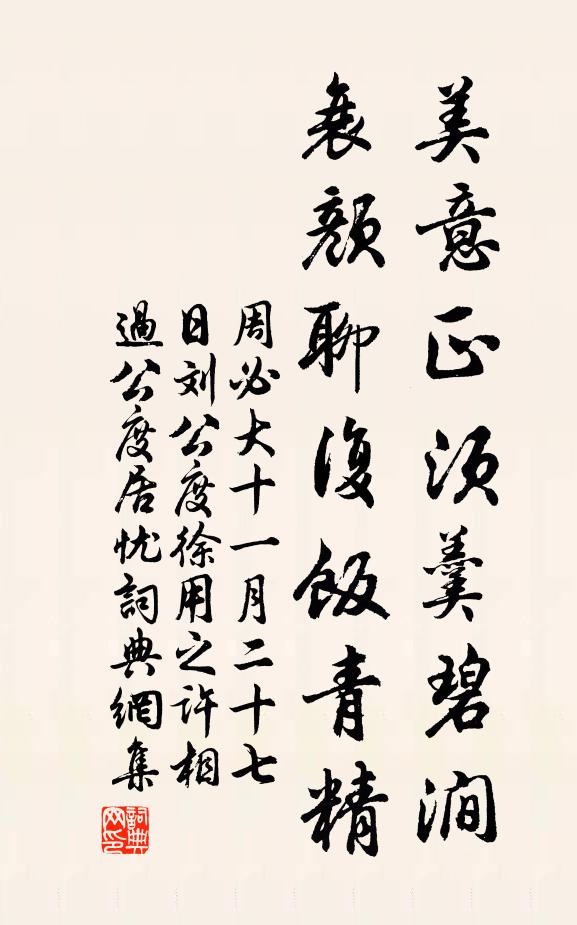 美意正須羹碧澗
衰顏聊復飯青精
周必大十一月二十七
日刘公度徐用之许相
過公度居忧詞典網集
詞典網印